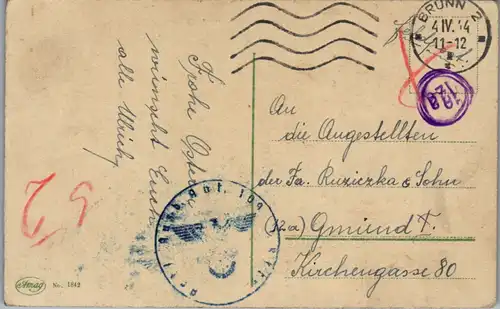 BRÜNN 2
4 IV. 44
11-12
128
Frohe Ostern
wünscht Euch
alle Ulrich
An
die Angestellten
der Fa. Ruziczka & Sohn
(12a) Gmünd
Kirchengasse 80
52
Amag
No. 1842